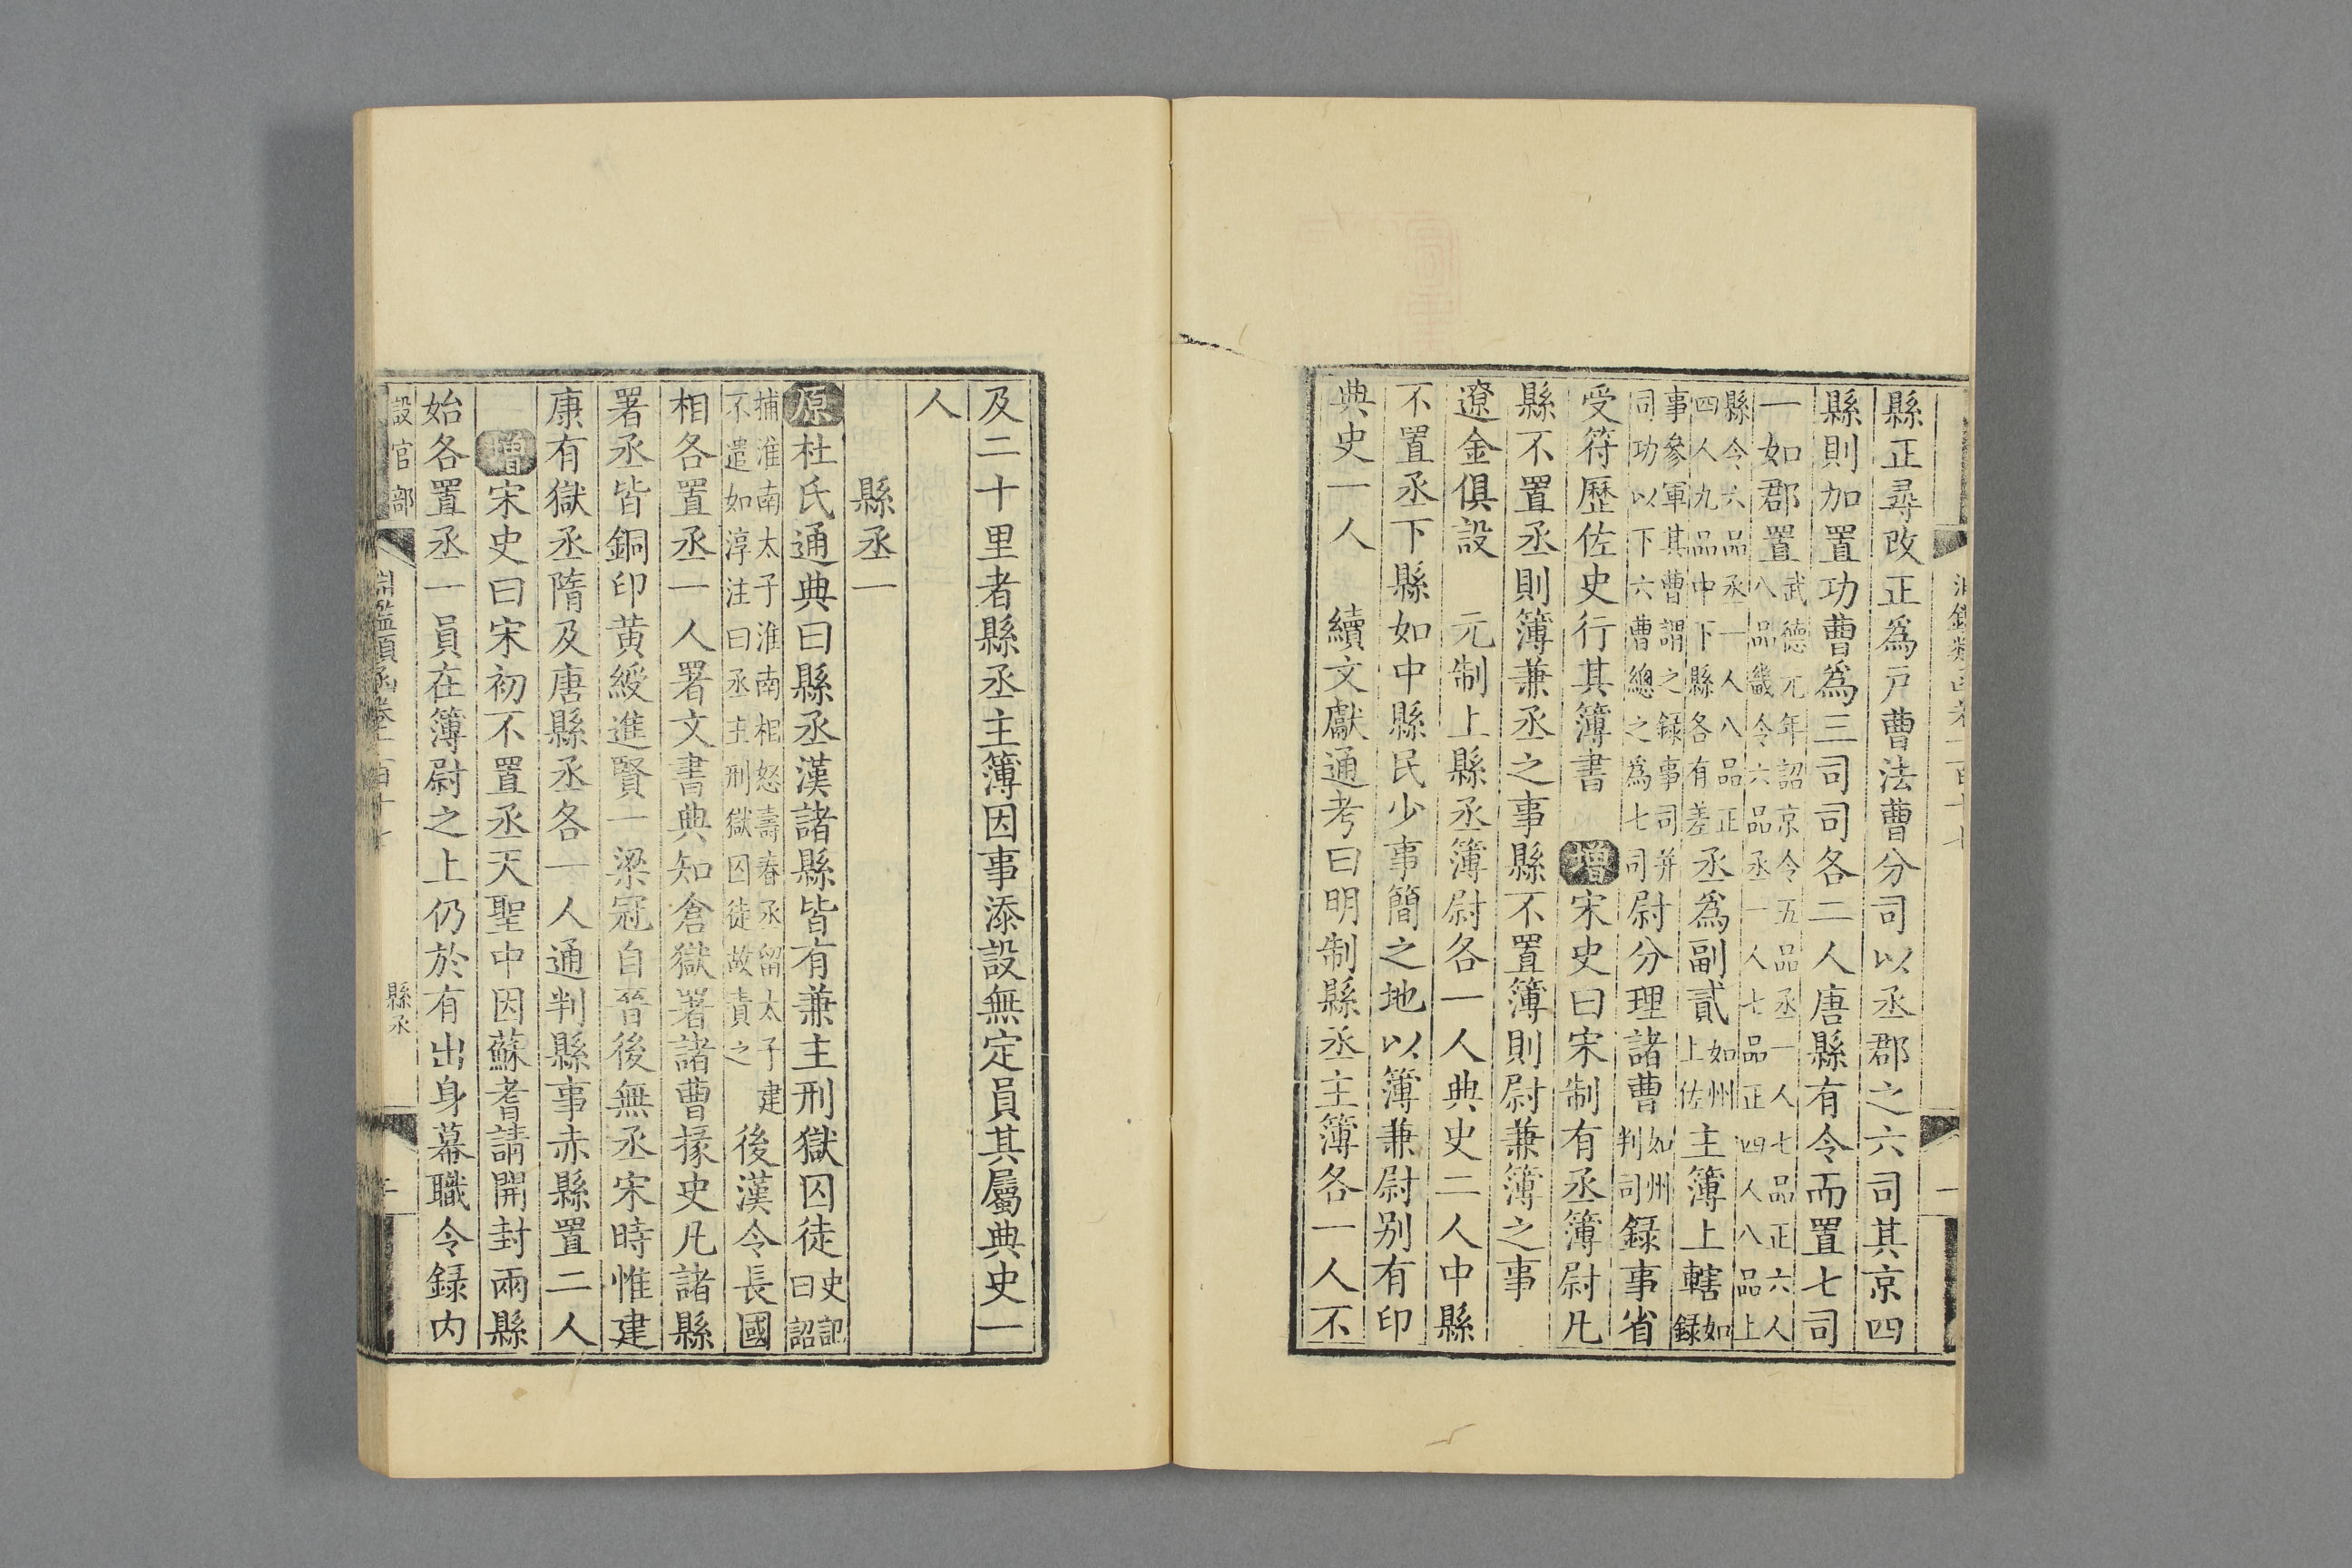 縣正尋改正爲戸曹法曹分司以丞郡之六司其京四
縣則加置功曹爲三司司各二人唐縣有令而置七司
一如郡置武德元年詔京令五品丞一人七品正六人
八品畿令六品丞一人七品正四人八品上
縣令六品丞一人八品正
四人九品中下縣各有差丞爲副貳如州
上佐主簿上轄如
録
事參軍其曹謂之録事司并
同功以下六曹總之為七司尉分理諸曹如州
判司録事省
受符歷佐史行其簿書　增宋史曰宋制有丞簿尉凡
縣不置丞則簿兼丞之事縣不置簿則尉兼簿之事
遼金俱設　元制上縣丞簿尉各一人典史二人中縣
不置丞下縣如中縣民少事簡之地以簿兼尉别有印
典史一人　續文獻通考曰明制縣丞主簿各一人不
及二十里者縣丞主簿因事添設無定員其屬典史一
人
縣丞一
原杜氏通典曰縣丞漢諸縣皆有兼主刑獄囚徒史記
曰詔
捕淮南太子淮南相怒壽春丞留太子建
不遣如淳注曰丞主刑獄囚徒故責之　後漢令長國
相各置丞一人署文書典知倉獄署諸曹掾史凡諸縣
署丞皆銅印黄綬進賢一梁冠自晉後無丞宋時惟建
康有獄丞隋及唐縣丞各一人通判縣事赤縣置二人
增宋史曰宋初不置丞天聖中因蘇耆請開封兩縣
始各置丞一員在簿尉之上仍於有出身幕職令録内
設官部
淵鑑類函卷一百十七
縣丞